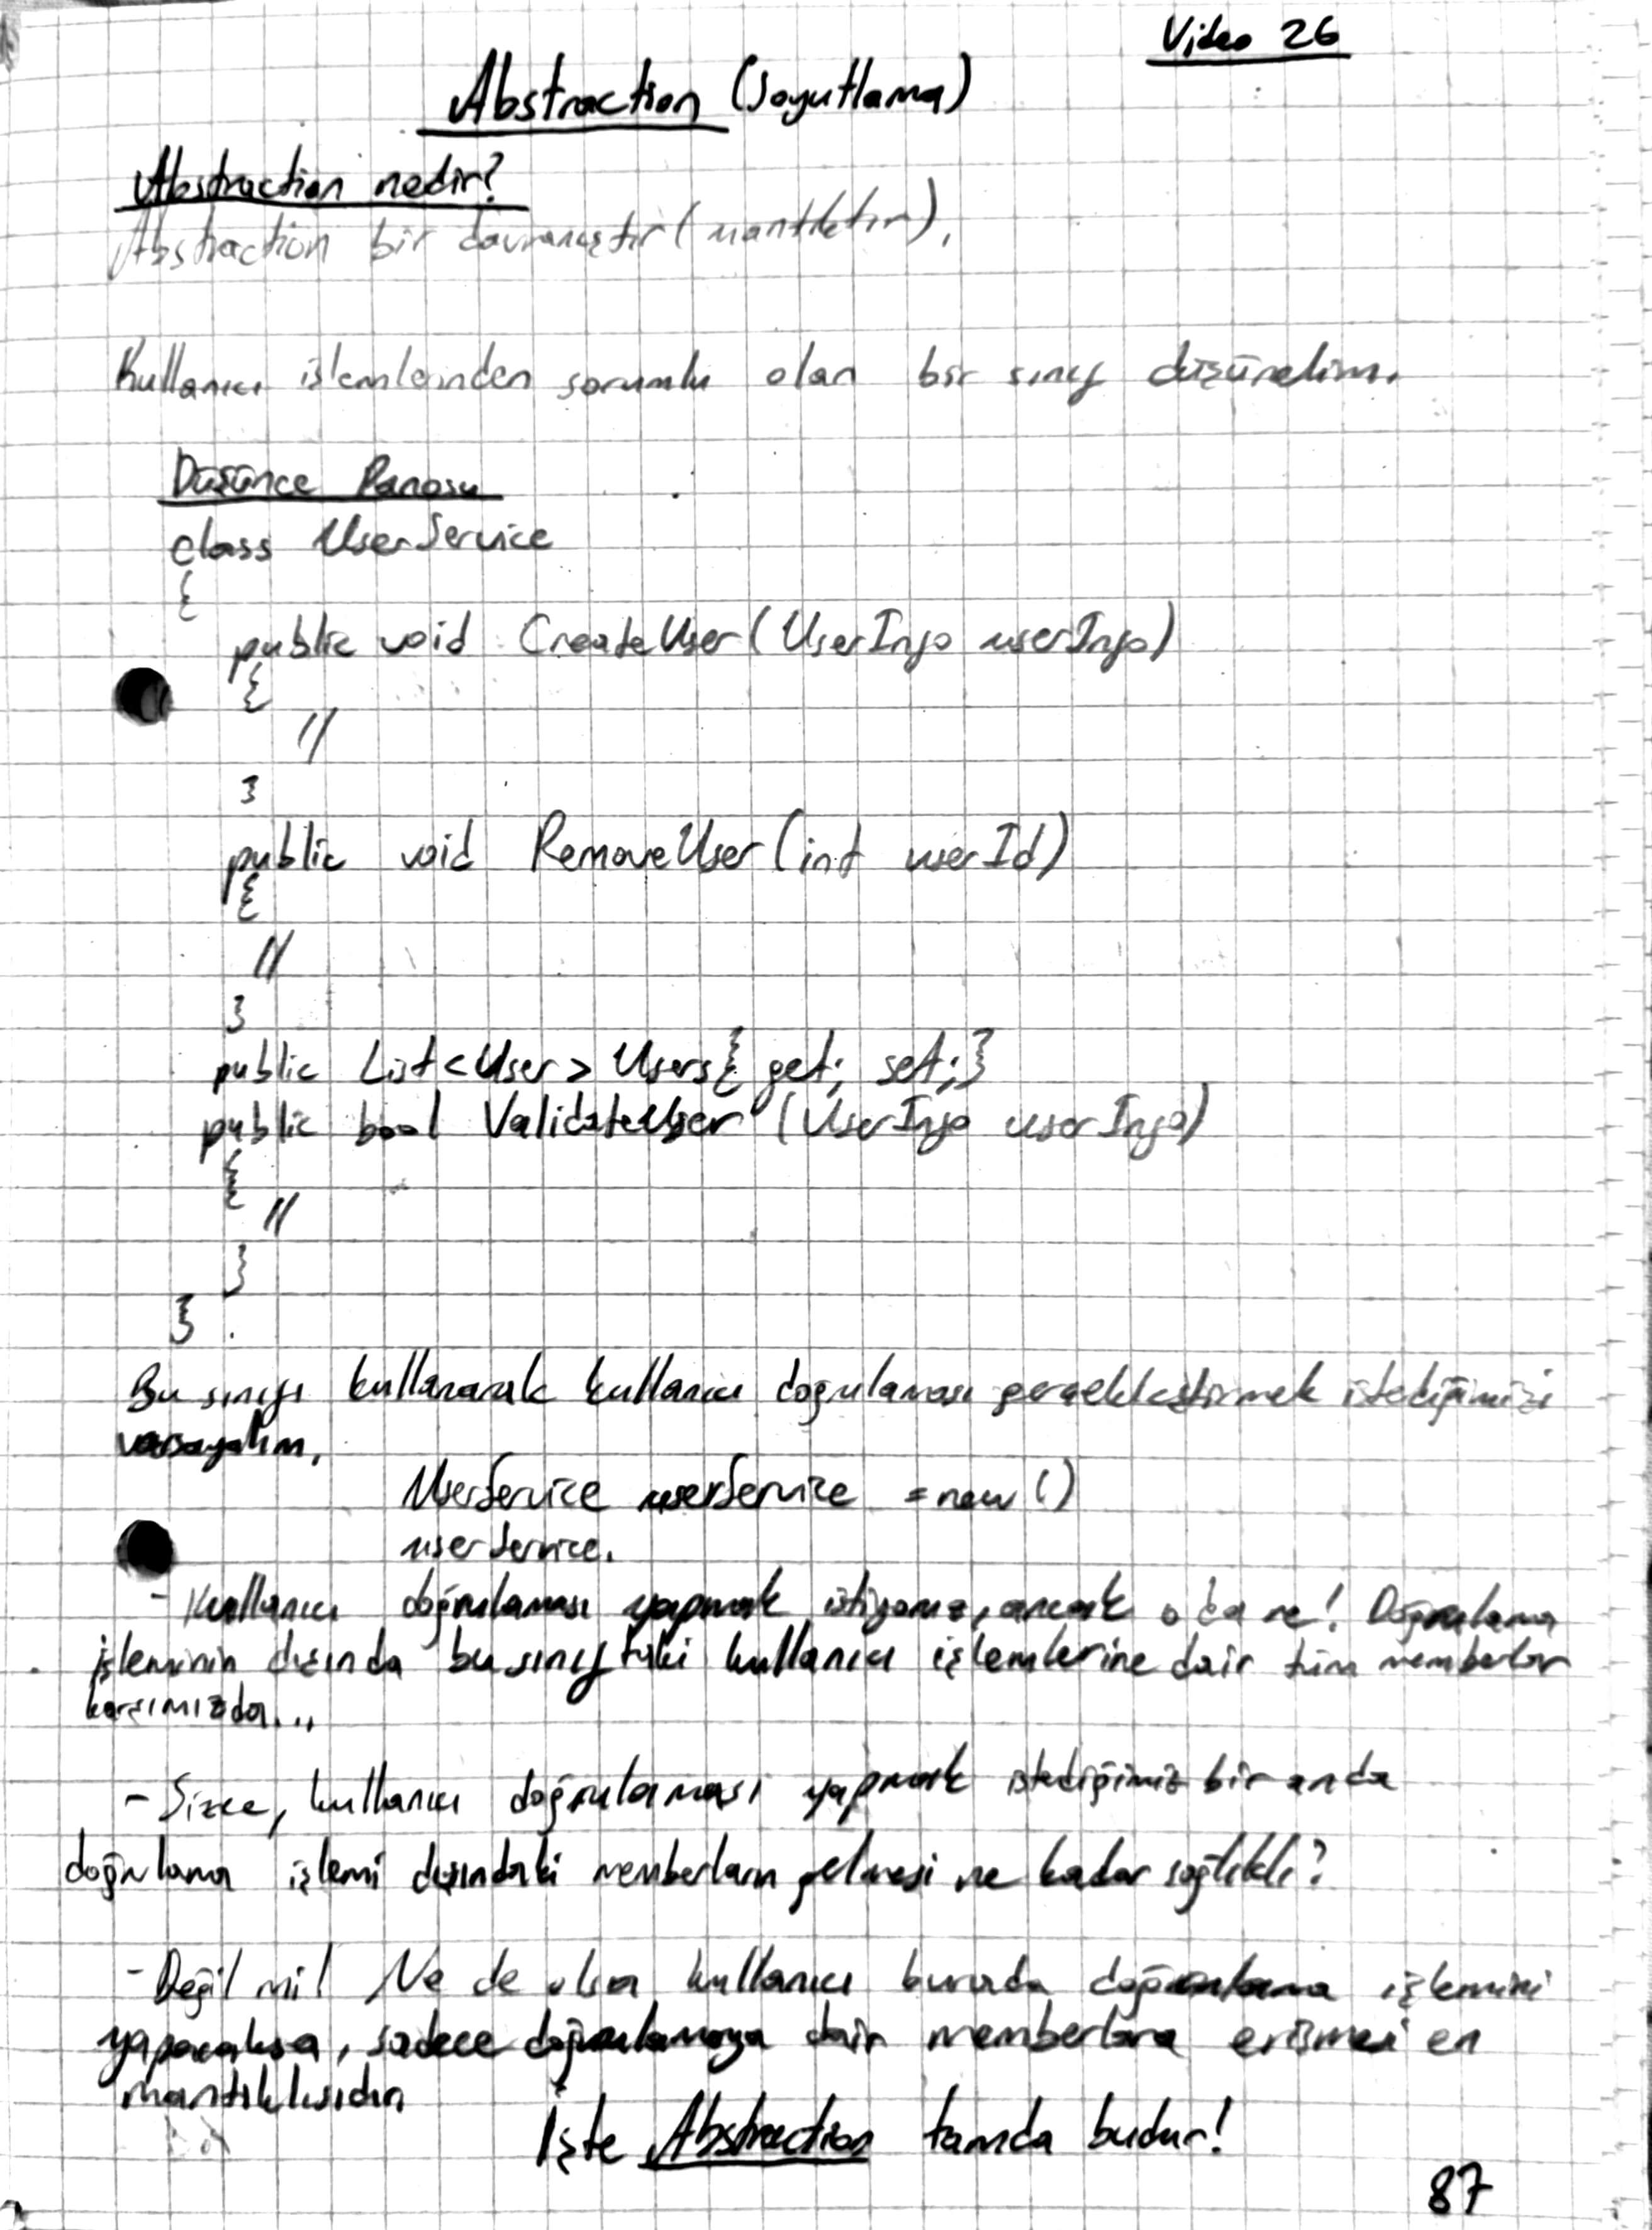 Video 26
Abstraction (Soyutlama)
Abstraction nedir?
Abstraction bir davranıştır (mantıktır).
Kullanıcı işlemlerinden sorumlu olan bir sınıf düşünelim.
Düşünce Panosu
class UserService
{
public void CreateUser(UserInfo userInfo)
{
//
}
public void RemoveUser(int userId)
{
//
}
public List<User> Users{ get; set;}
public bool ValidateUser (UserInfo userInfo)
{
//
}
}
Bu sınıfı kullanarak kullanıcı doğrulaması gerçekleştirmek istediğimizi
varsayalım.
UserService userService = new ()
userService.
- Kullanıcı doğrulaması yapmak istiyoruz, ancak o da ne! Doğrulama
işleminin dışında bu sınıftaki kullanıcı işlemlerine dair tüm memberlar
karşımızda...
- Sizce, kullanıcı doğrulaması yapmak istediğimiz bir anda
doğrulama işlemi dışındaki memberların gelmesi ne kadar sağlıklı?
- Değil mi! Ne de olsa kullanıcı burada doğrulama işlemini
yapacaksa, sadece doğrulamaya dair memberlara erişmesi en
mantıklısıdır
İşte Abstraction tamda budur!
87